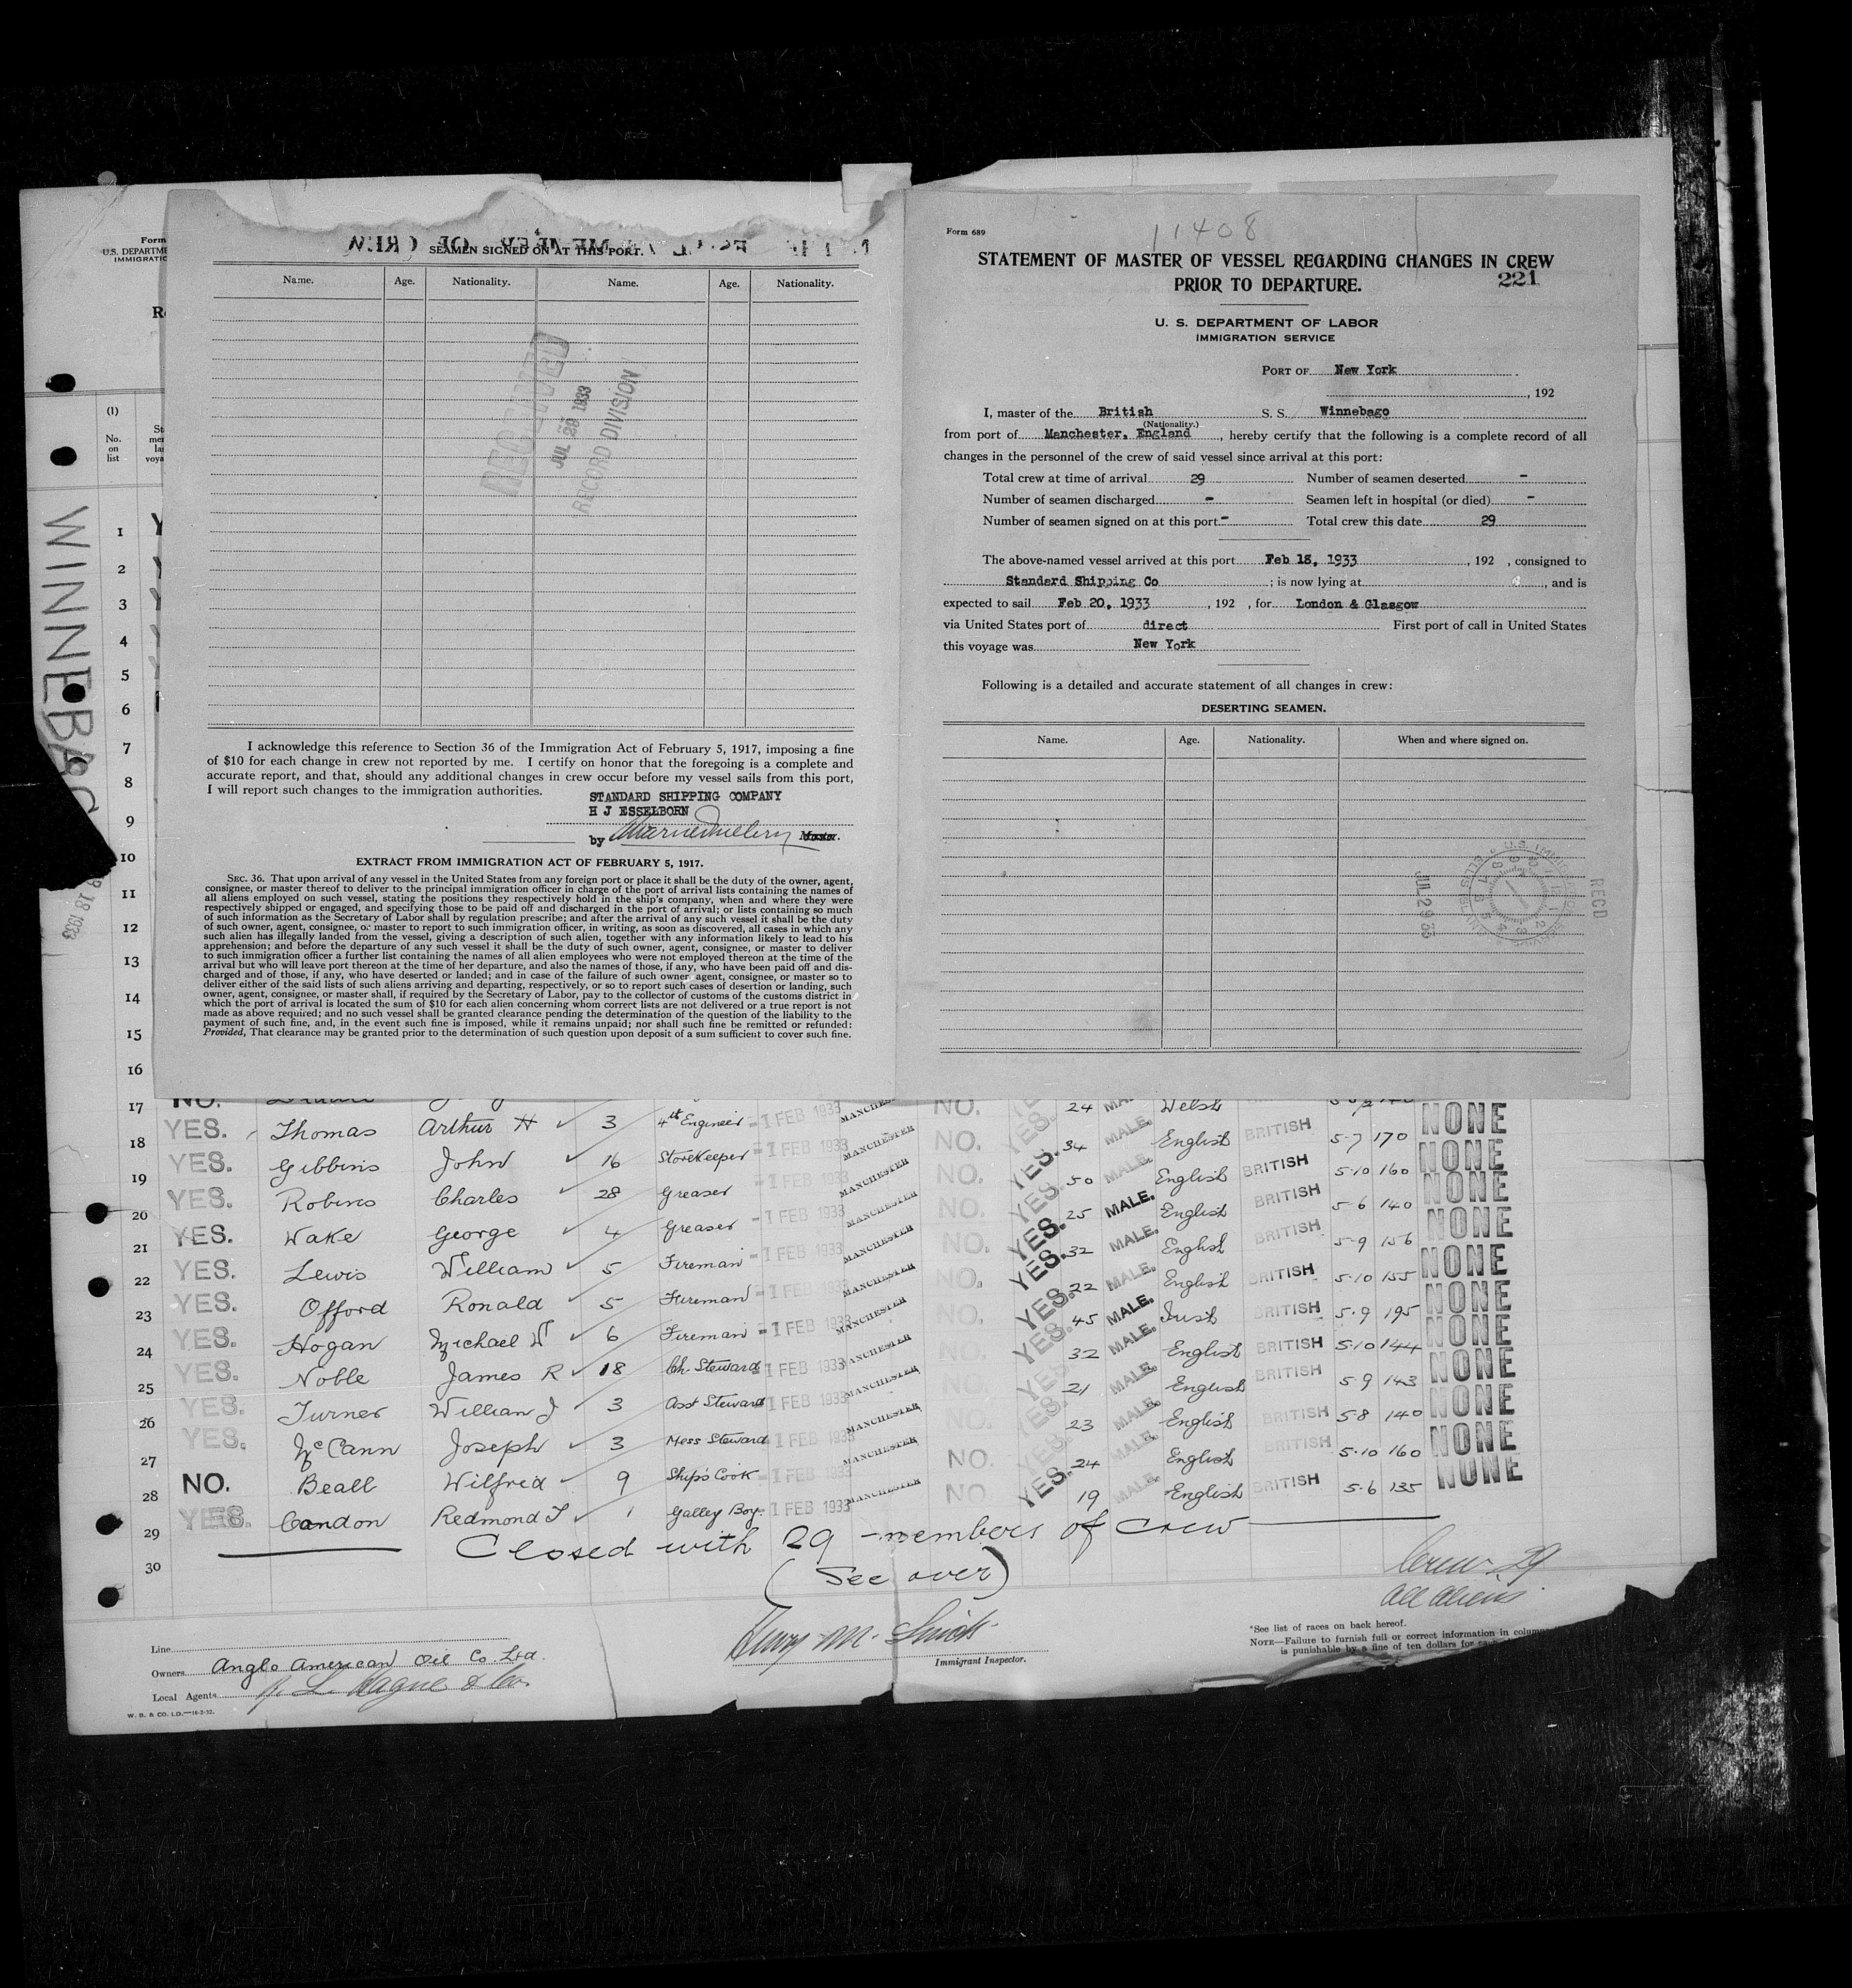 Form
U.S. DEPARTME
IMMIGRATIO
(1)
No.
on
list
WINNEBAGO
18 1933
1
2
3
4
5
6
7
8
9
10
11
12
13
14
15
16
4
SEAMEN SIGNED ON AT THIS PORT.
Name. Age. Nationality. Name. Age. Nationality.
RECEIVED
JUL 29 1933
RECORD DIVISION
I acknowledge this reference to Section 36 of the Immigration Act of February 5, 1917, imposing a fine
of $10 for each change in crew not reported by me. I certify on honor that the foregoing is a complete and
accurate report, and that, should any additional changes in crew occur before my vessel sails from this port,
I will report such changes to the immigration authorities.
STANDARD SHIPPING COMPANY
H J ESSELBORN
by Master.
EXTRACT FROM IMMIGRATION ACT OF FEBRUARY 5, 1917.
SEC. 36. That upon arrival of any vessel in the United States from any foreign port or place it shall be the duty of the owner, agent,
consignee, or master thereof to deliver to the principal immigration officer in charge of the port of arrival lists containing the names of
all aliens employed on such vessel, stating the positions they respectively hold in the ship's company, when and where they were
respectively shipped or engaged, and specifying those to be paid off and discharged in the port of arrival; or lists containing so much
of such information as the Secretary of Labor shall by regulation prescribe; and after the arrival of any such vessel it shall be the duty
of such owner, agent, consignee, or master to report to such immigration officer, in writing, as soon as discovered, all cases in which any
such alien has illegally landed from the vessel, giving a description of such alien, together with any information likely to lead to his
apprehension; and before the departure of any such vessel it shall be the duty of such owner, agent, consignee, or master to deliver
to such immigration officer a further list containing the names of all alien employees who were not employed thereon at the time of the
arrival but who will leave port thereon at the time of her departure, and also the names of those, if any, who have been paid off and dis-
charged and of those, if any, who have deserted or landed; and in case of the failure of such owner agent, consignee, or master so to
deliver either of the said lists of such aliens arriving and departing, respectively, or so to report such cases of desertion or landing, such
owner, agent, consignee, or master shall, if required by the Secretary of Labor, pay to the collector of customs of the customs district in
which the port of arrival is located the sum of $10 for each alien concerning whom correct lists are not delivered or a true report is not
made as above required; and no such vessel shall be granted clearance pending the determination of the question of the liability to the
payment of such fine, and, in the event such fine is imposed, while it remains unpaid; nor shall such fine be remitted or refunded:
Provided, That clearance may be granted prior to the determination of such question upon deposit of a sum sufficient to cover such fine.
Form 689
11408
STATEMENT OF MASTER OF VESSEL REGARDING CHANGES IN CREW
PRIOR TO DEPARTURE.
221
U. S. DEPARTMENT OF LABOR
IMMIGRATION SERVICE
PORT OF New York
, 192
I, master of the British S. S. Winnebago
(Nationality.)
from port of Manchester, England, hereby certify that the following is a complete record of all
changes in the personnel of the crew of said vessel since arrival at this port:
Total crew at time of arrival 29 Number of seamen deserted -
Number of seamen discharged - Seamen left in hospital (or died) -
Number of seamen signed on at this port - Total crew this date 29
The above-named vessel arrived at this port Feb 18, 1933, 192 , consigned to
Standard Shipping Co ; is now lying at , and is
expected to sail Feb 20, 1933, 192 , for London & Glasgow
via United States port of direct First port of call in United States
this voyage was New York
Following is a detailed and accurate statement of all changes in crew:
DESERTING SEAMEN.
Name. Age. Nationality. When and where signed on.
U.S. IMMIGRATION SERVICE ELLIS
JUL 29 33
RECD
17 NO. NO. 24 Welsh NONE
18 YES. Thomas Arthur H 3 4th Engineer -1 FEB 1933 MANCHESTER NO. YES. 34 MALE. English BRITISH 5-7 170 NONE
19 YES. Gibbins John 16 Storekeeper -1 FEB 1933 MANCHESTER NO. YES. 50 MALE. English BRITISH 5-10 160 NONE
20 YES. Robins Charles 28 Greaser -1 FEB 1933 MANCHESTER NO. YES. 25 MALE. English BRITISH 5-6 140 NONE
21 YES. Wake George 4 Greaser -1 FEB 1933 MANCHESTER NO. YES. 32 MALE. English BRITISH 5-9 156 NONE
22 YES. Lewis William 5 Fireman -1 FEB 1933 MANCHESTER NO. YES. 22 MALE. English BRITISH 5-10 155 NONE
23 YES. Offord Ronald 5 Fireman -1 FEB 1933 MANCHESTER NO. YES. 45 MALE. Irish BRITISH 5-9 195 NONE
24 YES. Hogan Michael W 6 Fireman -1 FEB 1933 MANCHESTER NO. YES. 32 MALE. English BRITISH 5-10 144 NONE
25 YES. Noble James R 18 Ch. Steward -1 FEB 1933 MANCHESTER NO. YES. 21 MALE. English BRITISH 5-9 143 NONE
26 YES. Turner William J 3 Asst Steward -1 FEB 1933 MANCHESTER NO. YES. 23 MALE. English BRITISH 5-8 140 NONE
27 YES. McCann Joseph 3 Mess Steward -1 FEB 1933 MANCHESTER NO. YES. 24 MALE. English BRITISH 5-10 160 NONE
28 NO. Beall Wilfred 9 Ship's Cook -1 FEB 1933 MANCHESTER NO YES. 19 MALE. English BRITISH 5-6 135 NONE
29 YES. Condon Redmond T 1 Galley Boy -1 FEB 1933 MANCHESTER
Closed with 29 members of crew
30
(See over)
Crew 29
all aliens
Line
Owners Anglo American Oil Co. Ltd.
Local Agents
Henry M. Smith
Immigrant Inspector.
*See list of races on back hereof.
NOTE—Failure to furnish full or correct information in column
is punishable by a fine of ten dollars for
W. B. & CO. LD.—16-2-32.